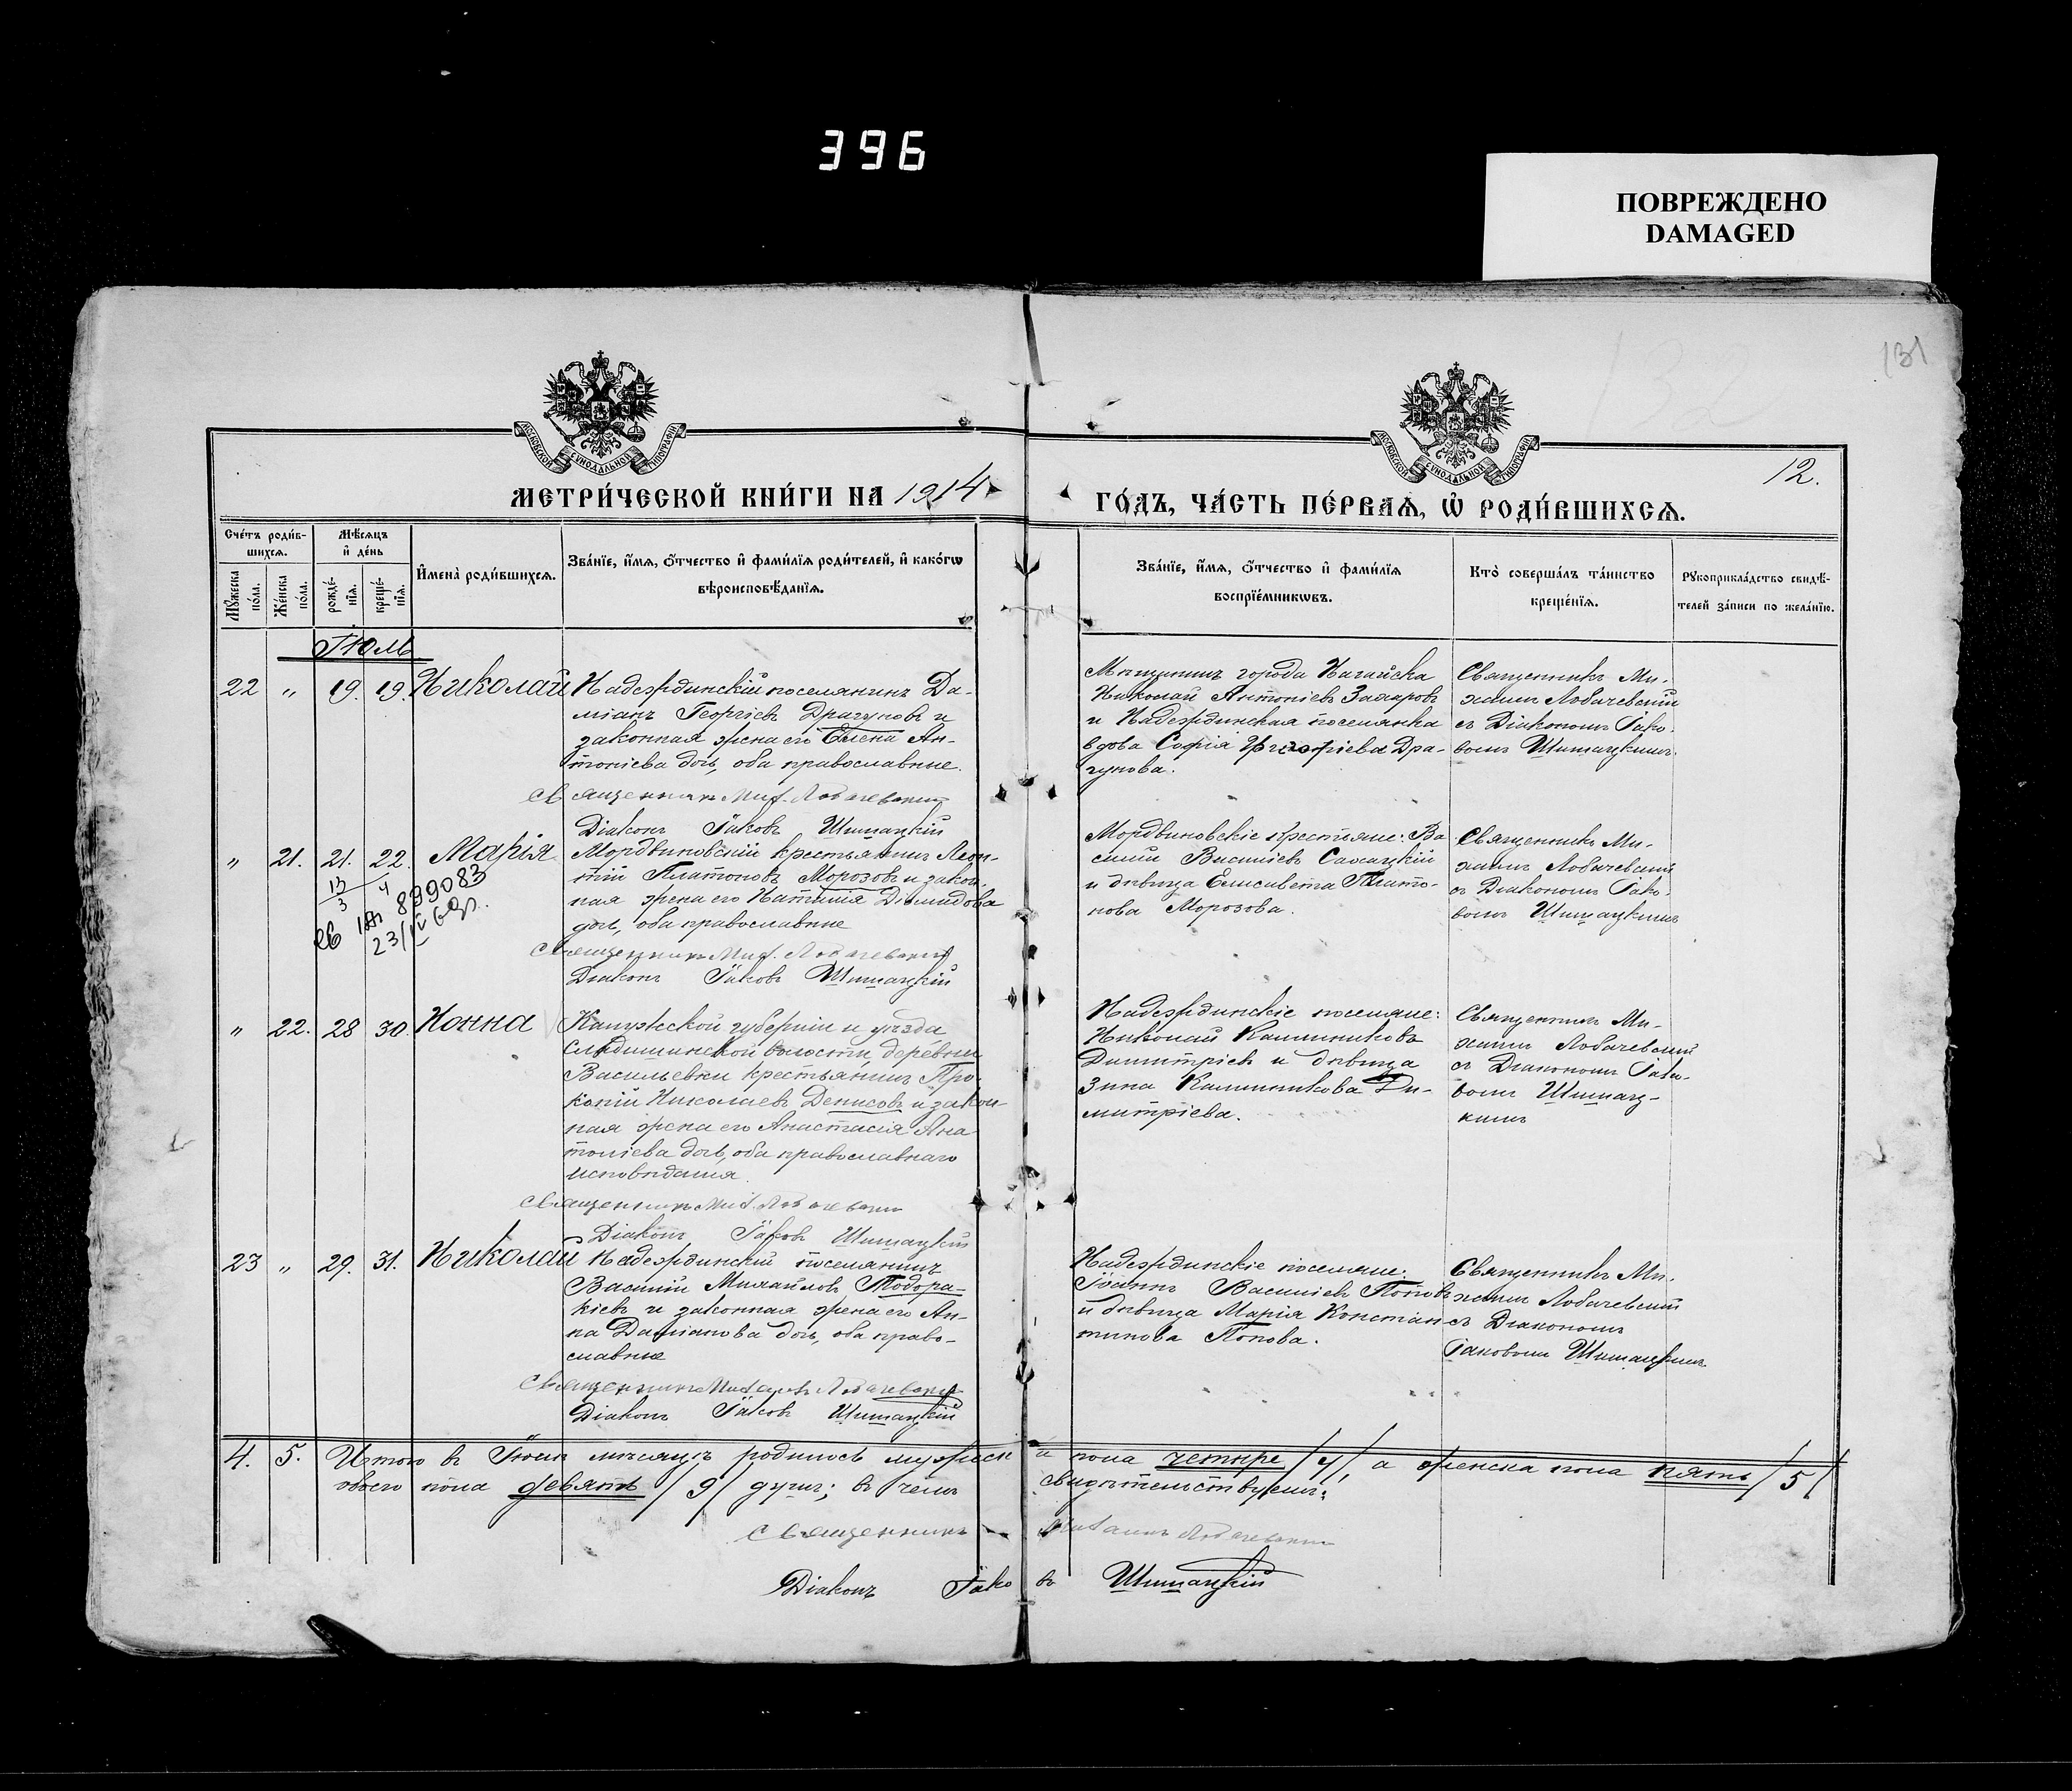 396
ПОВРЕЖДЕНО
DAMAGED
131
12.
МОСКОВСКОЙ СѴНОДАЛЬНОЙ ТИПОГРАФІИ
МОСКОВСКОЙ СѴНОДАЛЬНОЙ ТИПОГРАФІИ
МЕТРИ́ЧЕСКОЙ КНИ́ГИ НА 1914
ГО́ДЪ, ЧА́СТЬ ПЕ́РВАѦ, Ѡ҆ РОДИ́ВШИХСѦ.
Сче́тъ роди́в-
шихсѧ.
Мѣ́сѧцъ
и҆ де́нь
Мꙋ́жеска
по́ла.
Же́нска
по́ла.
рожде́-
нїѧ.
креще́-
нїѧ.
И҆мена̀ роди́вшихсѧ.
Зва́нїе, и҆́мѧ, ѻ҆́тчество и҆ фами́лїѧ роди́телей, и҆ како́гѡ
вѣроисповѣ́данїѧ.
Зва́нїе, и҆́мѧ, ѻ҆́тчество и҆ фами́лїѧ
воспрїе́мникѡвъ.
Кто̀ соверша́лъ та́инство
креще́нїѧ.
Рꙋкоприкла́дство свидѣ́-
телей за́писи по жела́нїю.
Іюль
22 " 19. 19. Николай
Надеждинскій поселянинъ Да-
міанъ Георгіевъ Драгуновъ и
законная жена его Елена Ан-
тоніева дочь, оба православные.
Священникъ Мих. Лобачевскій
Діаконъ Іаковъ Шишацкій
Мѣщанинъ города Ногайска
Николай Антоніевъ Захаровъ
и Надеждинская поселянка
вдова Софія Григоріева Дра-
гунова.
Священникъ Ми-
хаилъ Лобачевскій
съ Діакономъ Іако-
вомъ Шишацкимъ.
" 21. 21. 22. Марія
13 4
3
899083
Мордвиновскій крестьянинъ Леон-
тій Платоновъ Морозовъ и закон-
ная жена его Наталія Діомидова
дочь, оба православные
Священникъ Мих. Лобачевскій
Діаконъ Іаковъ Шишацкій
Мордвиновскіе крестьяне: Ва-
силій Васильевъ
и дѣвица Елисавета Плато-
нова Морозова.
Священникъ Ми-
хаилъ Лобачевскій
съ Діакономъ Іако-
вомъ Шишацкимъ
" 22. 28 30. Нонна
Калужской губерніи и уѣзда
волости, деревни
Васильевки крестьянинъ Про-
копій Николаевъ Денисовъ и закон-
ная жена его Анастасія Ана-
толіева дочь, оба православнаго
исповѣданія.
Священникъ Мих. Лобачевскій
Діаконъ Іаковъ Шишацкій
Надеждинскіе поселяне:
Николай Калинниковъ
Димитріевъ и дѣвица
Зина Калинникова Ди-
митріева.
Священникъ Ми-
хаилъ Лобачевскій
съ Діакономъ Іако-
вомъ Шишац-
кимъ
23 " 29. 31. Николай
Надеждинскій поселянинъ
Василій Михайловъ Тодора-
кіевъ и законная жена его Ан-
на Даміанова дочь, оба право-
славные
Священникъ Михаилъ Лобачевскій
Діаконъ Іаковъ Шишацкій
Надеждинскіе поселяне:
Іоаннъ Васильевъ Поповъ
и дѣвица Марія Констан-
тинова Попова.
Священникъ Ми-
хаилъ Лобачевскій
съ Діакономъ
Іаковомъ Шишацкимъ
4. 5. Итого въ Іюлѣ мѣсяцѣ родилось мужска пола четыре /4/, а женска пола пять /5/
обоего пола девять /9/ душъ; въ чемъ свидѣтельствуемъ:
Священникъ Михаилъ Лобачевскій
Діаконъ Іаковъ Шишацкій